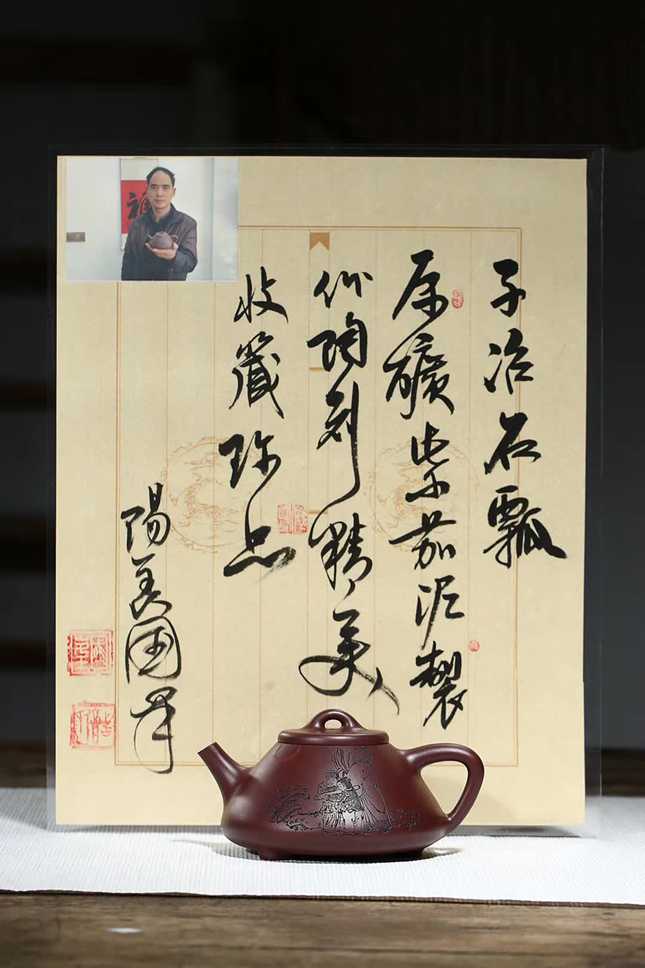 子冶石瓢
原礦紫茄泥製
作陶刻精美
收藏珍品
陽羨國
福